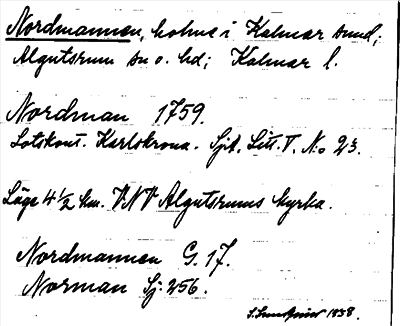 Nordmannen, holme i Kalmar sund;
Algutsrum sn o. hd; Kalmar l.
Nordman 1759.
Lotskont. Karlskrona. Sjk. Litt. V. No 23.
Läge 4 1/2 km. VNV Algutsrums kyrka.
Nordmannen G. 17.
Norman Sj: 256.
1938.